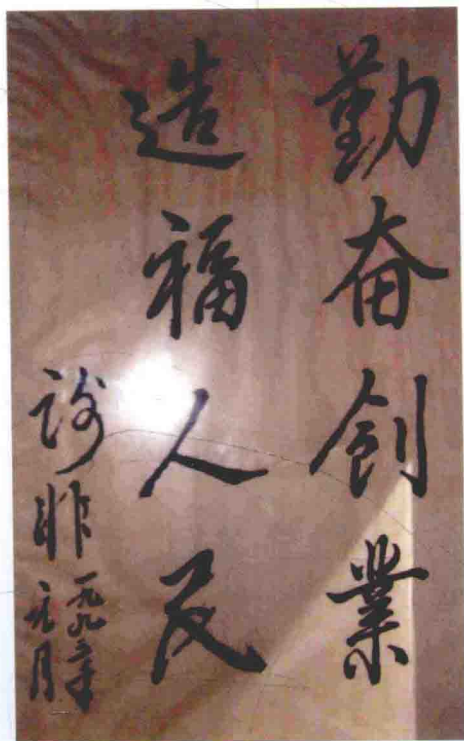 勤奋創業
造福人民
谢非
一九九二年
元月